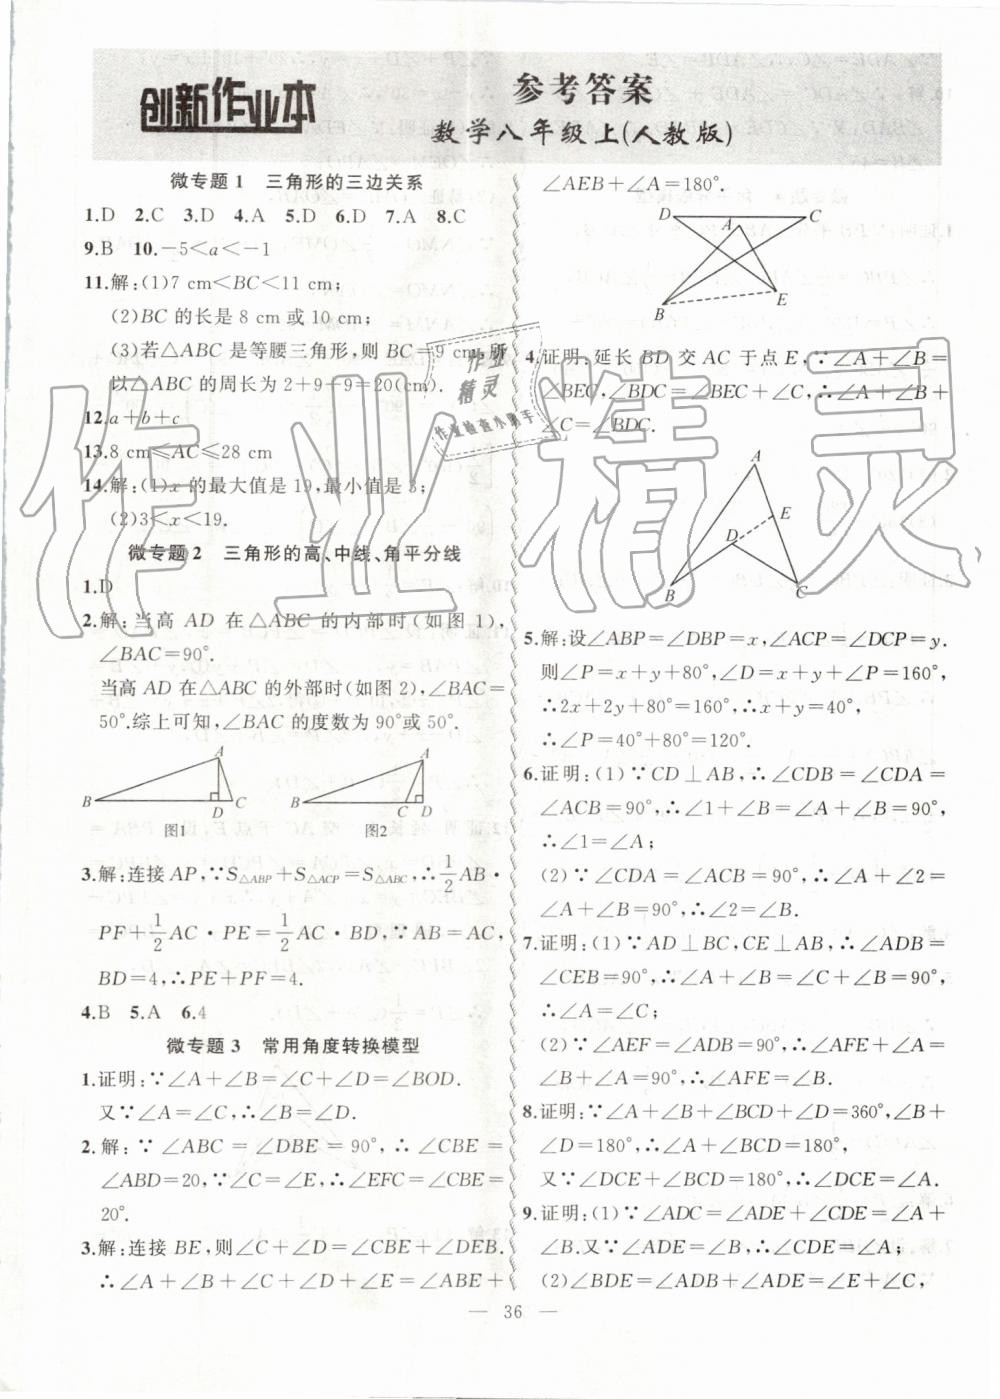 创新作业本
参考答案
数学八年级上(人教版)
微专题1 三角形的三边关系
1.D 2.C 3.D 4.A 5.D 6.D 7.A 8.C
9.B 10.-5<a<-1
11.解:(1)7 cm<BC<11 cm;
(2)BC的长是8 cm或10 cm;
(3)若△ABC是等腰三角形,则BC=9 cm,所
以△ABC的周长为2+9+9=20(cm).
12.a+b+c
13.8 cm≤AC≤28 cm
14.解:(1)x的最大值是19,最小值是3;
(2)3<x<19.
微专题2 三角形的高、中线、角平分线
1.D
2.解:当高AD在△ABC的内部时(如图1),
∠BAC=90°.
当高AD在△ABC的外部时(如图2),∠BAC=
50°.综上可知,∠BAC的度数为90°或50°.
A
B
D
C
图1
A
B
C
D
图2
3.解:连接AP,∵S△ABP+S△ACP=S△ABC,∴1/2AB·
PF+1/2AC·PE=1/2AC·BD,∵AB=AC,
BD=4,∴PE+PF=4.
4.B 5.A 6.4
微专题3 常用角度转换模型
1.证明:∵∠A+∠B=∠C+∠D=∠BOD.
又∵∠A=∠C,∴∠B=∠D.
2.解:∵∠ABC=∠DBE=90°,∴∠CBE=
∠ABD=20,∵∠C=∠E,∴∠EFC=∠CBE=
20°.
3.解:连接BE,则∠C+∠D=∠CBE+∠DEB.
∴∠A+∠B+∠C+∠D+∠E=∠ABE+
∠AEB+∠A=180°.
D
A
C
B
E
4.证明:延长BD交AC于点E,∵∠A+∠B=
∠BEC,∠BDC=∠BEC+∠C,∴∠A+∠B+
∠C=∠BDC.
A
E
D
B
C
5.解:设∠ABP=∠DBP=x,∠ACP=∠DCP=y.
则∠P=x+y+80°,∠D=x+y+∠P=160°,
∴2x+2y+80°=160°,∴x+y=40°,
∴∠P=40°+80°=120°.
6.证明:(1)∵CD⊥AB,∴∠CDB=∠CDA=
∠ACB=90°,∴∠1+∠B=∠A+∠B=90°,
∴∠1=∠A;
(2)∵∠CDA=∠ACB=90°,∴∠A+∠2=
∠A+∠B=90°,∴∠2=∠B.
7.证明:(1)∵AD⊥BC,CE⊥AB,∴∠ADB=
∠CEB=90°,∴∠A+∠B=∠C+∠B=90°,
∴∠A=∠C;
(2)∵∠AEF=∠ADB=90°,∴∠AFE+∠A=
∠B+∠A=90°,∴∠AFE=∠B.
8.证明:∵∠A+∠B+∠BCD+∠D=360°,∠B+
∠D=180°,∴∠A+∠BCD=180°,
又∵∠DCE+∠BCD=180°,∴∠DCE=∠A.
9.证明:(1)∵∠ADC=∠ADE+∠CDE=∠A+
∠B.又∵∠ADE=∠B,∴∠CDE=∠A;
(2)∠BDE=∠ADB+∠ADE=∠E+∠C,
— 36 —
作业精灵
作业
精灵
作业检查小助手